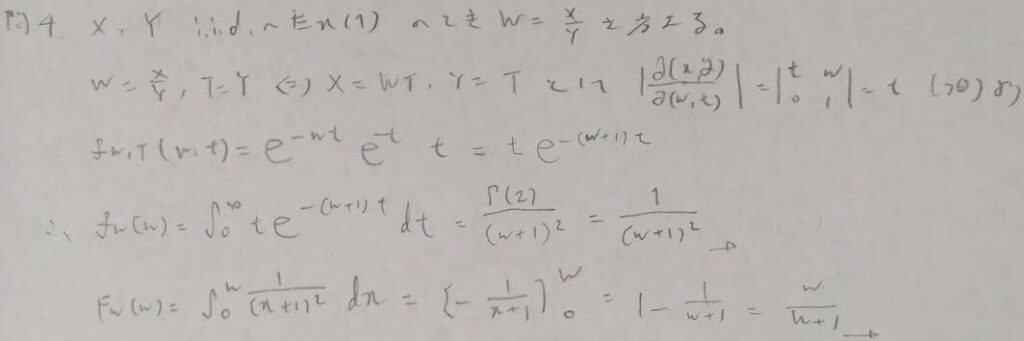 問4. X, Y i.i.d. ~ Ex(1) のとき W = X/Y を考える。
W = X/Y, T = Y ⇔ X = WT, Y = T このとき |∂(x,y)/∂(w,t)| = |t w; 0 1| = t (>0) より
f_{W,T}(w,t) = e^{-wt} e^{-t} t = t e^{-(w+1)t}
∴ f_W(w) = ∫_0^∞ t e^{-(w+1)t} dt = Γ(2)/(w+1)^2 = 1/(w+1)^2
F_W(w) = ∫_0^w 1/(x+1)^2 dx = [-1/(x+1)]_0^w = 1 - 1/(w+1) = w/(w+1)